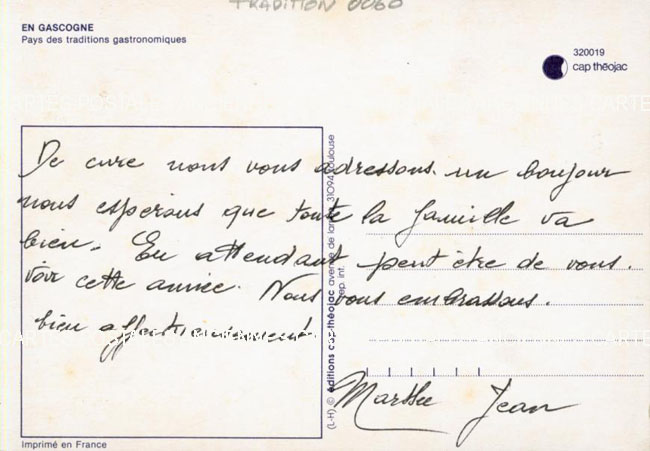 TRADITION 0060
EN GASCOGNE
Pays des traditions gastronomiques
320019
cap théojac
De cure nous vous adressons un bonjour
nous esperons que toute la famille va
bien. En attendant peut être de vous.
voir cette année. Nous vous embrassons.
bien affectueusement
Marthe Jean
(L-H) © éditions cap-théojac avenue de 31094 toulouse
rep. int.
Imprimé en France
CARTES POSTALES ANCIENNES